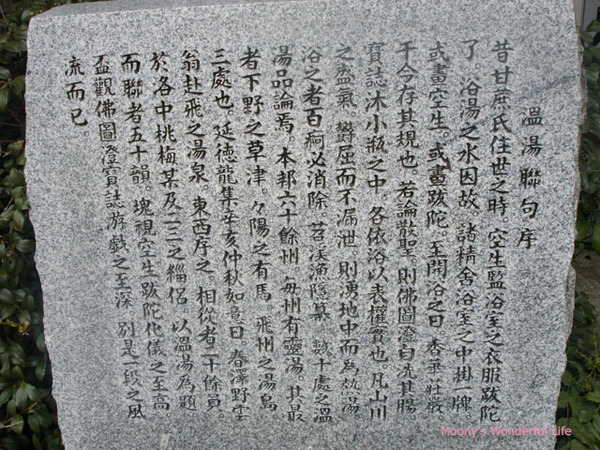 溫湯聯句序
昔甘蔗氏住世之時。空生監浴室之衣服跋陀
了。浴湯之水因故。諸精舍浴室之中掛一牌。
或畫空生。或畫跋陀。至開浴之日香華莊嚴
于今存其規也。若論散聖。則佛圖澄自洗其腸
寶誌沐小瓶之中。各依浴以表權實也。凡山川
之盛氣。欝屈而不漏泄。則湧地中而為熱湯。
浴之者百痾必消除。苕溪漁隱纂 數十處之溫
湯品論焉。本邦六十餘州。每州有靈湯 其最
者下野之草津。々陽之有馬。飛州之湯島
三處也。延德龍集辛亥仲秋如意日 春澤野雲
翁赴飛之湯泉。東西序之。相從者二十餘員。
於洛中桃梅某及一二之緇侶。以溫湯為題
而聯者五十韻。塊視空生跋陀化儀之至高
盃觀佛圖澄寶誌游戲之至深 別是一段之風
流而已。
Moony's Wonderful Life